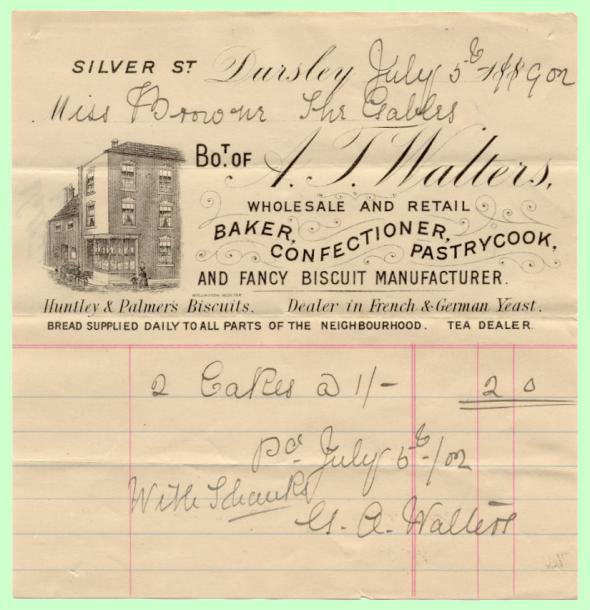 SILVER ST. Dursley July 5th 1902
Miss Browne The Gables
BOT. OF A. T. Walters,
WHOLESALE AND RETAIL
BAKER, CONFECTIONER, PASTRYCOOK,
AND FANCY BISCUIT MANUFACTURER.
Huntley & Palmer's Biscuits. Dealer in French & German Yeast.
BREAD SUPPLIED DAILY TO ALL PARTS OF THE NEIGHBOURHOOD. TEA DEALER.
2 Cakes @ 1/- 2 0
Pd July 5th/02
With Thanks
A. Walters